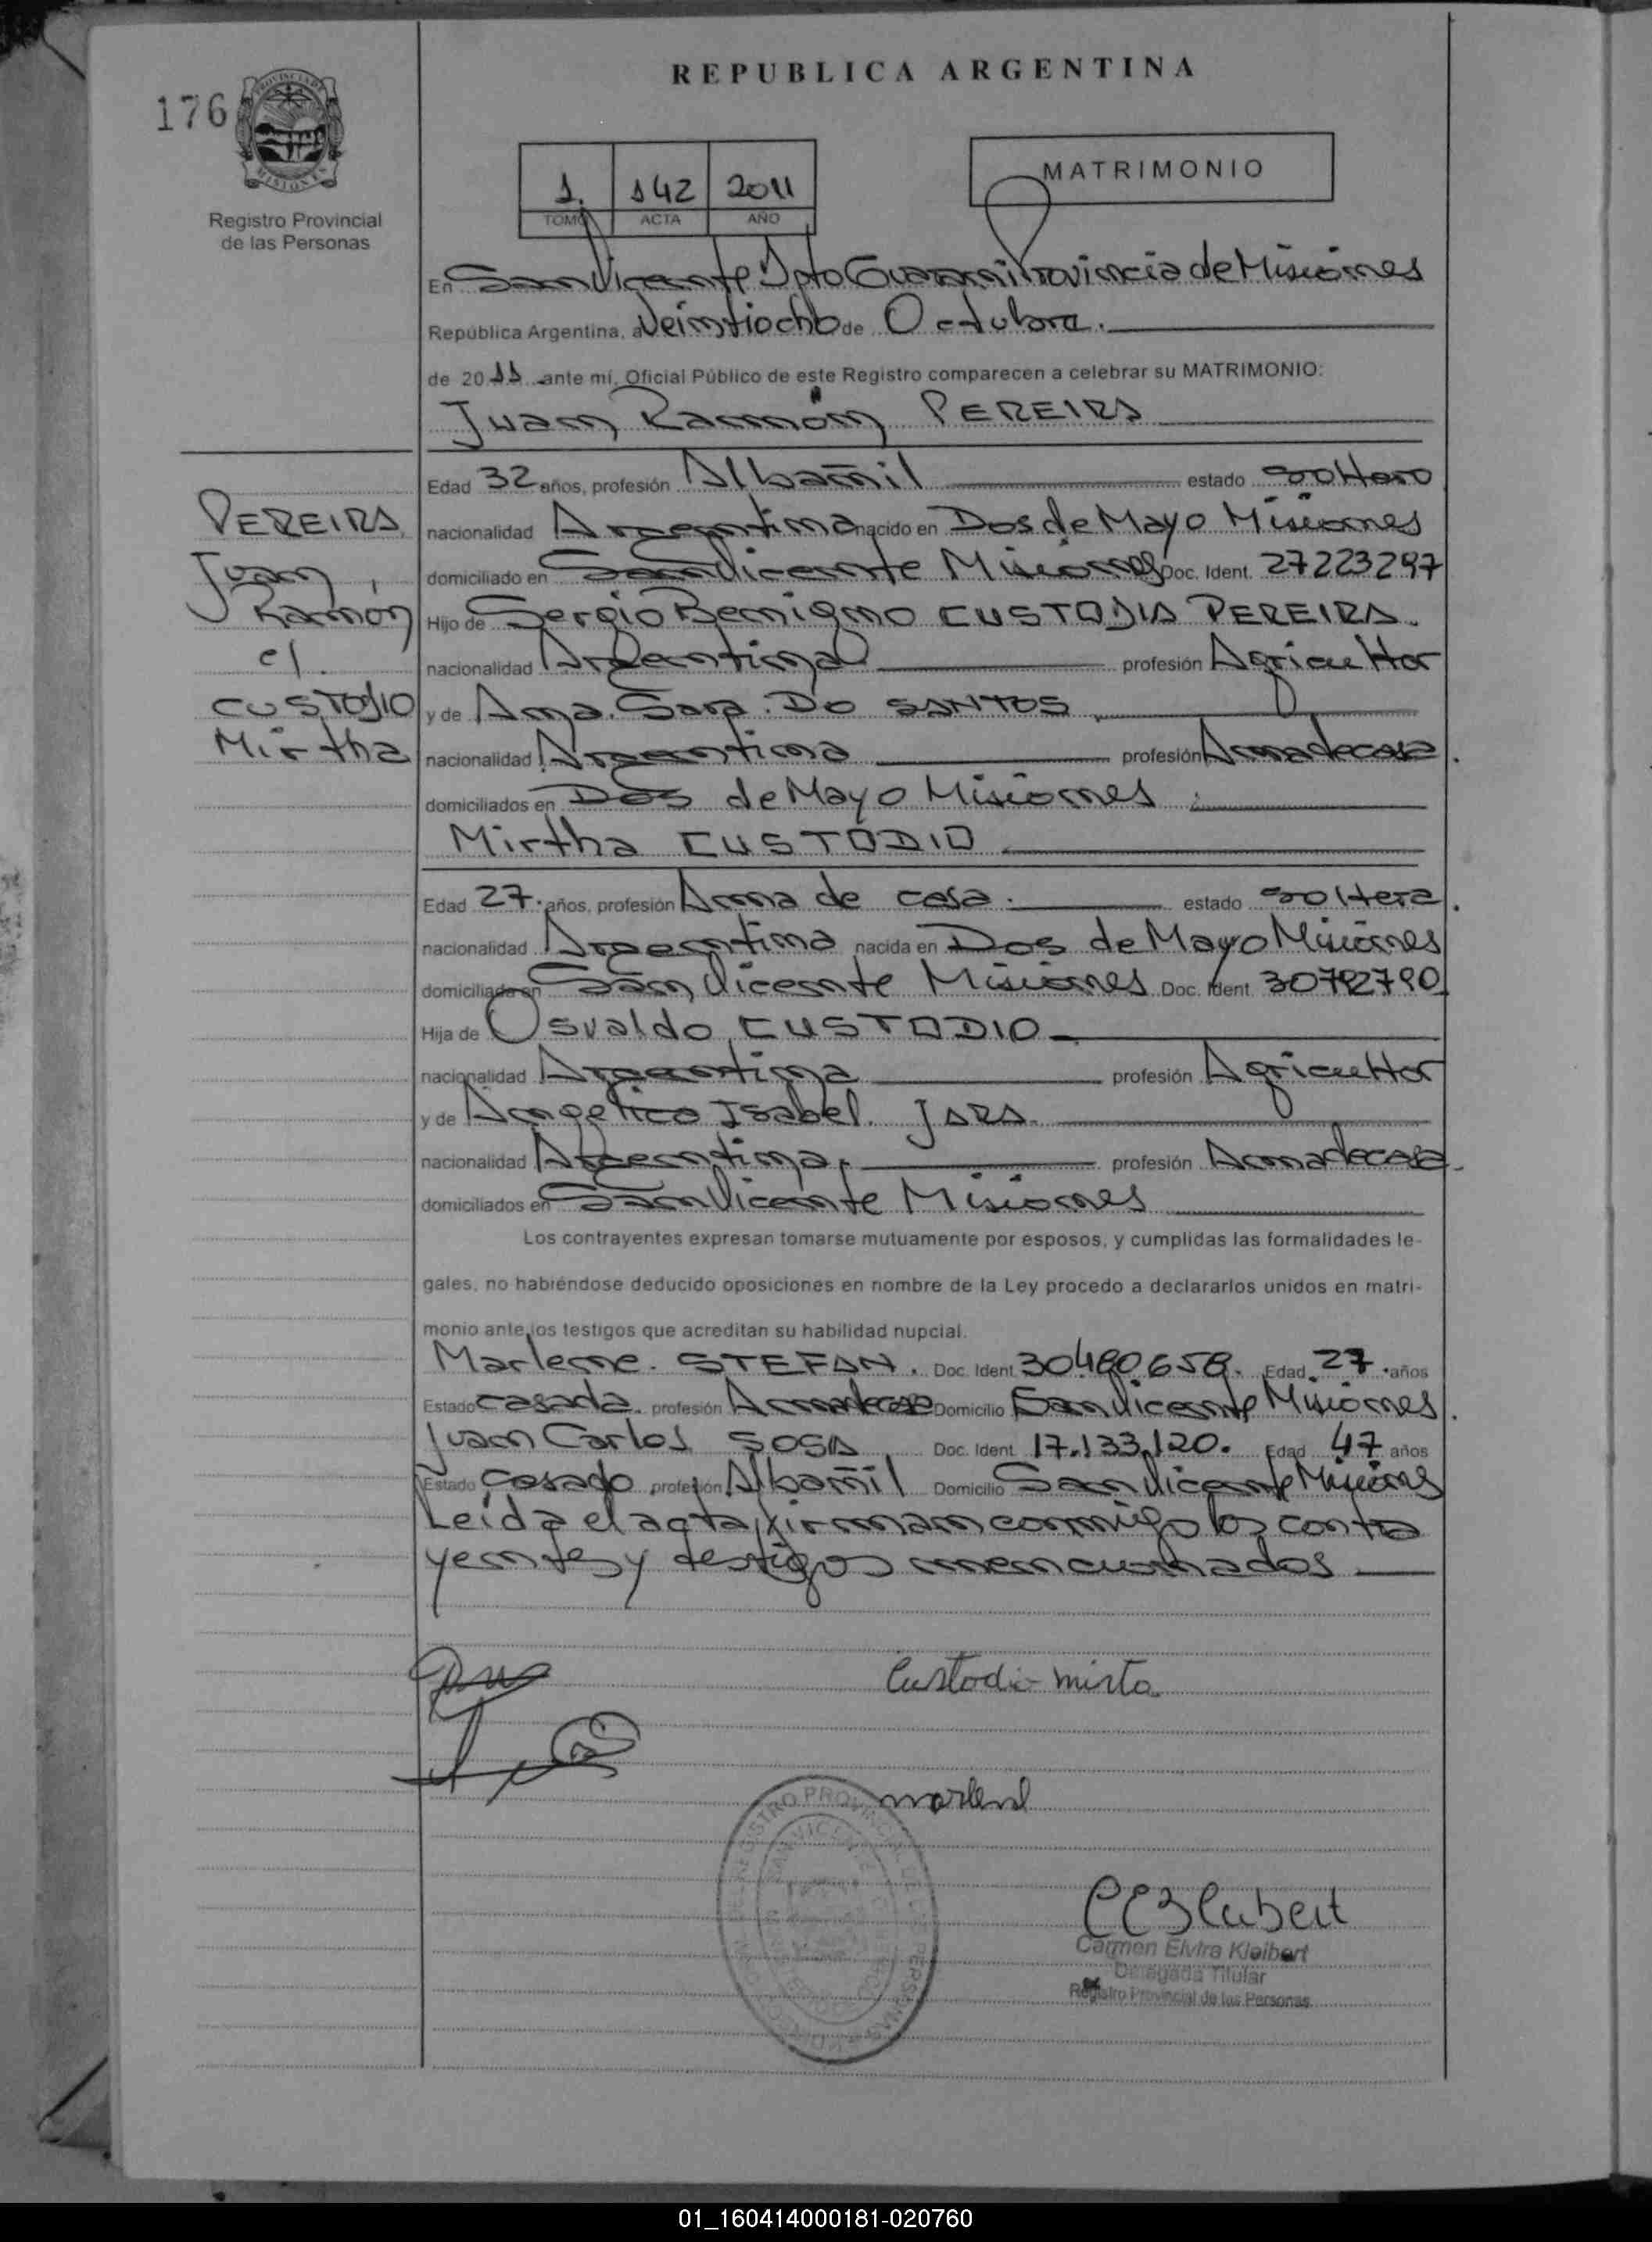 REPUBLICA ARGENTINA
176
PROVINCIA DE
MISIONES
Registro Provincial
de las Personas
MATRIMONIO
1. 142 2011
TOMO ACTA AÑO
En San Vicente Dpto Guarani Provincia de Misiones
República Argentina, a Veintiocho de Octubre.
de 2011 ante mí, Oficial Público de este Registro comparecen a celebrar su MATRIMONIO:
Juan Ramón PEREIRA
PEREIRA,
Juan,
Ramón
c/.
CUSTODIO
Mirtha
Edad 32 años, profesión Albañil estado soltero
nacionalidad Argentina nacido en Dos de Mayo Misiones
domiciliado en San Vicente Misiones Doc. Ident. 27223297
Hijo de Sergio Benigno CUSTODIA PEREIRA.
nacionalidad Argentina profesión Agricultor
y de Ana. Sara. Do SANTOS
nacionalidad Argentina profesión Ama de casa.
domiciliados en Dos de Mayo Misiones
Mirtha CUSTODIO
Edad 27. años, profesión Ama de casa. estado soltera.
nacionalidad Argentina nacida en Dos de Mayo Misiones
domiciliada en San Vicente Misiones Doc. Ident.
Hija de Osvaldo CUSTODIO
nacionalidad Argentina profesión Agricultor
y de Angelica Isabel. JARA.
nacionalidad Argentina. profesión Ama de casa.
domiciliados en San Vicente Misiones
Los contrayentes expresan tomarse mutuamente por esposos, y cumplidas las formalidades le-
gales, no habiéndose deducido oposiciones en nombre de la Ley procedo a declararlos unidos en matri-
monio ante los testigos que acreditan su habilidad nupcial.
Marlene. STEFAN. Doc. Ident. Edad 27. años
Estado casada. profesión Ama de casa Domicilio San Vicente Misiones.
Juan Carlos SOSA Doc. Ident. 17.133.120. Edad 47 años
Estado casado profesión Albañil Domicilio San Vicente Misiones
Leída el acta, firman conmigo los contra
yentes y testigos mencionados
Custodio mirta
marlene
CEKleibert
Carmen Elvira Kleibert
Delegada Titular
Registro Provincial de las Personas
01_160414000181-020760